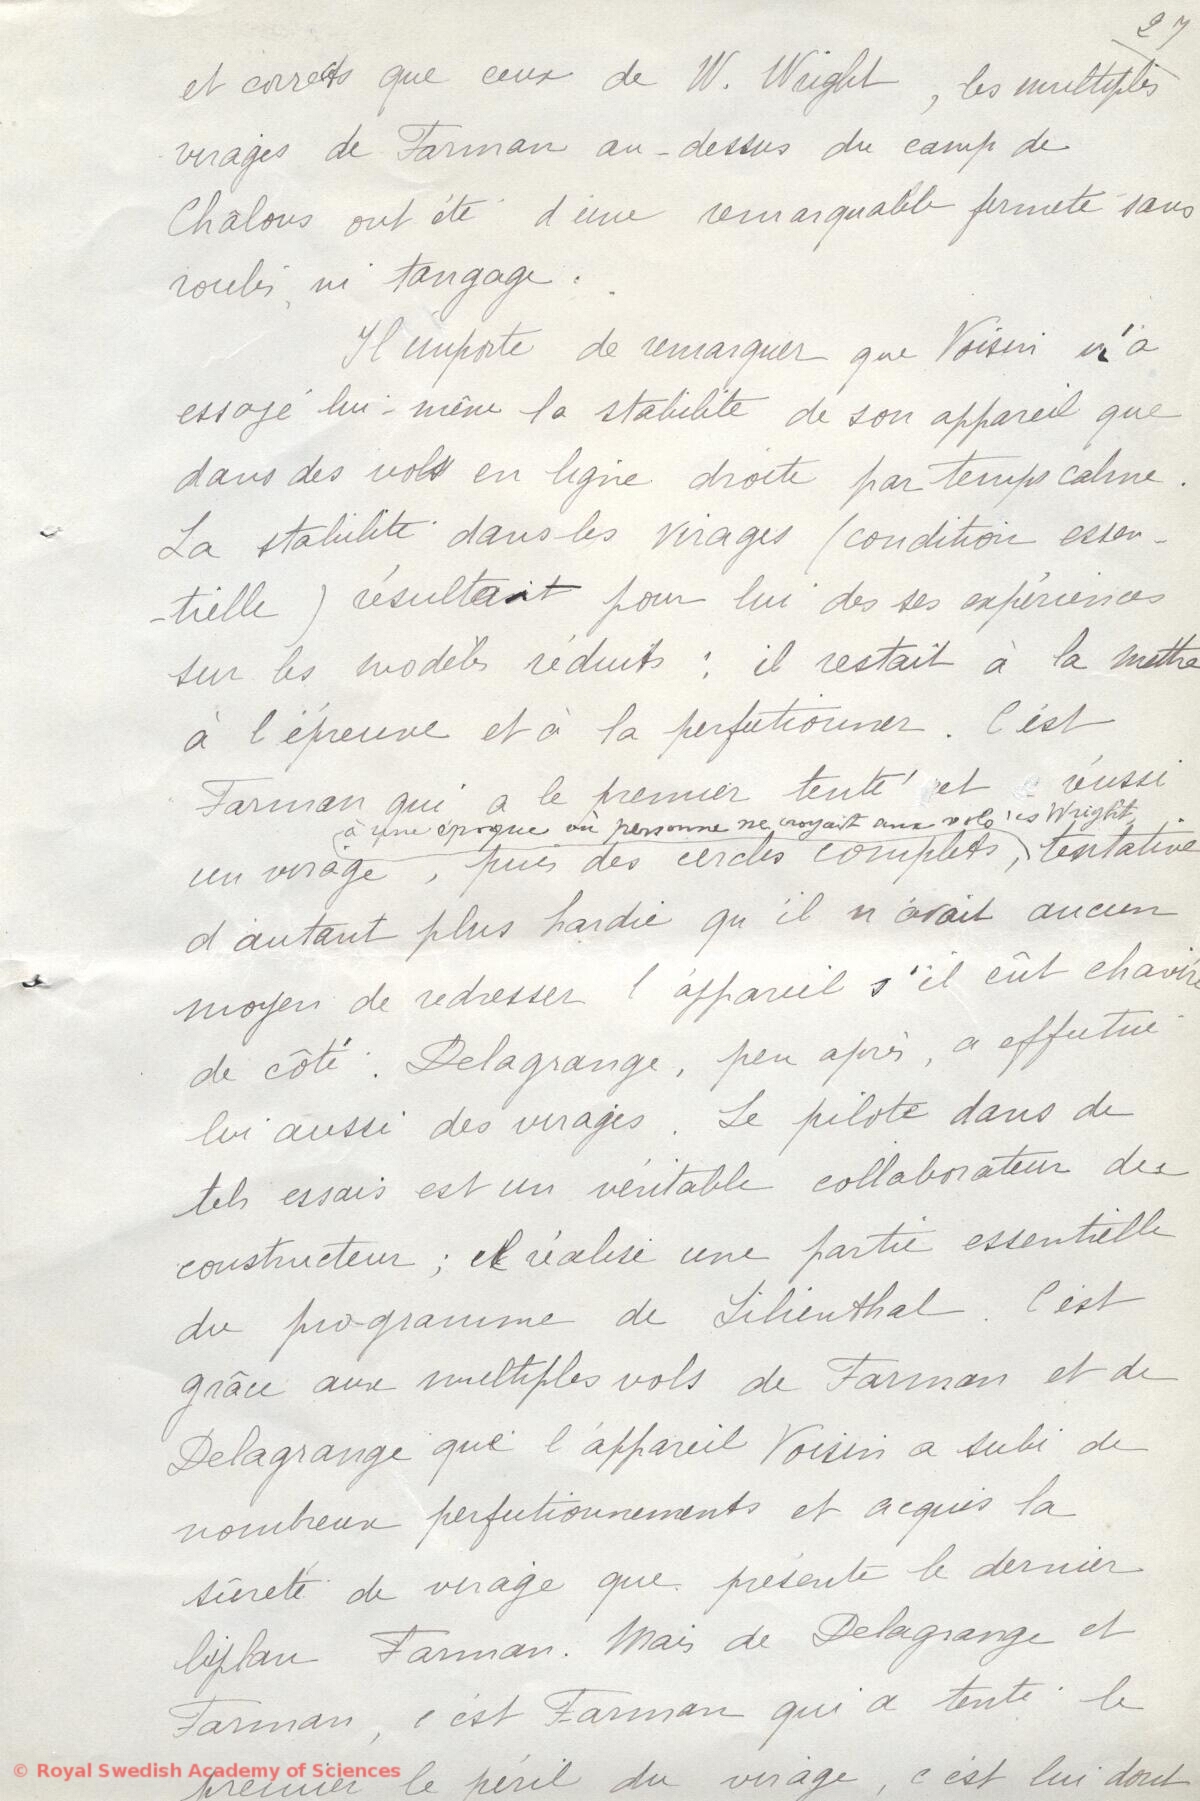 27
et corrects que ceux de W. Wright, les multiples
virages de Farman au-dessus du camp de
Châlons ont été d'une remarquable fermeté sans
roulis, ni tangage.
Il importe de remarquer que Voisin n'a
essayé lui-même la stabilité de son appareil que
dans des vols en ligne droite par temps calme.
La stabilité dans les virages (condition essen-
-tielle) résultait pour lui des ses expériences
sur les modèles réduits ; il restait à la mettre
à l'épreuve et à la perfectionner. C'est
Farman qui a le premier tenté et réussi
à une époque où personne ne croyait aux vols des Wright,
un virage, puis des cercles complets, tentative
d'autant plus hardie qu'il n'avait aucun
moyen de redresser l'appareil s'il eût chaviré
de côté. Delagrange, peu après, a effectué
lui aussi des virages. Le pilote dans de
tels essais est un véritable collaborateur du
constructeur ; il réalise une partie essentielle
du programme de Lilienthal. C'est
grâce aux multiples vols de Farman et de
Delagrange que l'appareil Voisin a subi de
nombreux perfectionnements et acquis la
sûreté de virage que présente le dernier
biplan Farman. Mais de Delagrange et
Farman, c'est Farman qui a tenté le
premier le péril du virage, c'est lui dont
© Royal Swedish Academy of Sciences